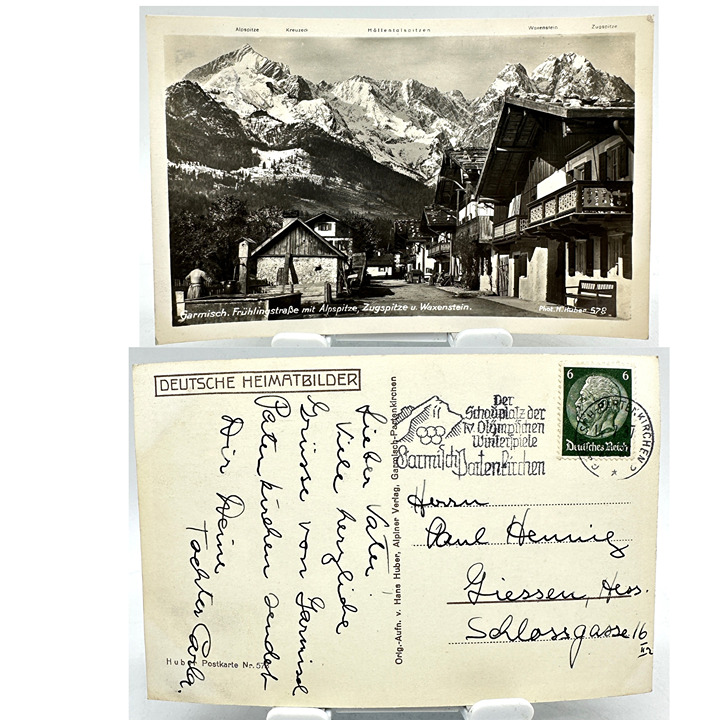 Alpspitze Kreuzeck Höllentalspitzen Waxenstein Zugspitze
Garmisch. Frühlingstraße mit Alpspitze, Zugspitze u. Waxenstein.
Phot. H. Huber 578
DEUTSCHE HEIMATBILDER
Lieber Vater!
Viele herzliche
Grüsse von Garmisch
Partenkirchen sendet
Dir Deine
Tochter Carla.
Huber Postkarte Nr. 578
Orig.-Aufn. v. Hans Huber, Alpiner Verlag, Garmisch-Partenkirchen
Der
Schauplatz der
IV. Olympischen
Winterspiele
Garmisch Partenkirchen
6 6
Deutsches Reich
GARMISCH-PARTENKIRCHEN
Herrn
Paul Hennig
Giessen, Hess.
Schlossgasse 16